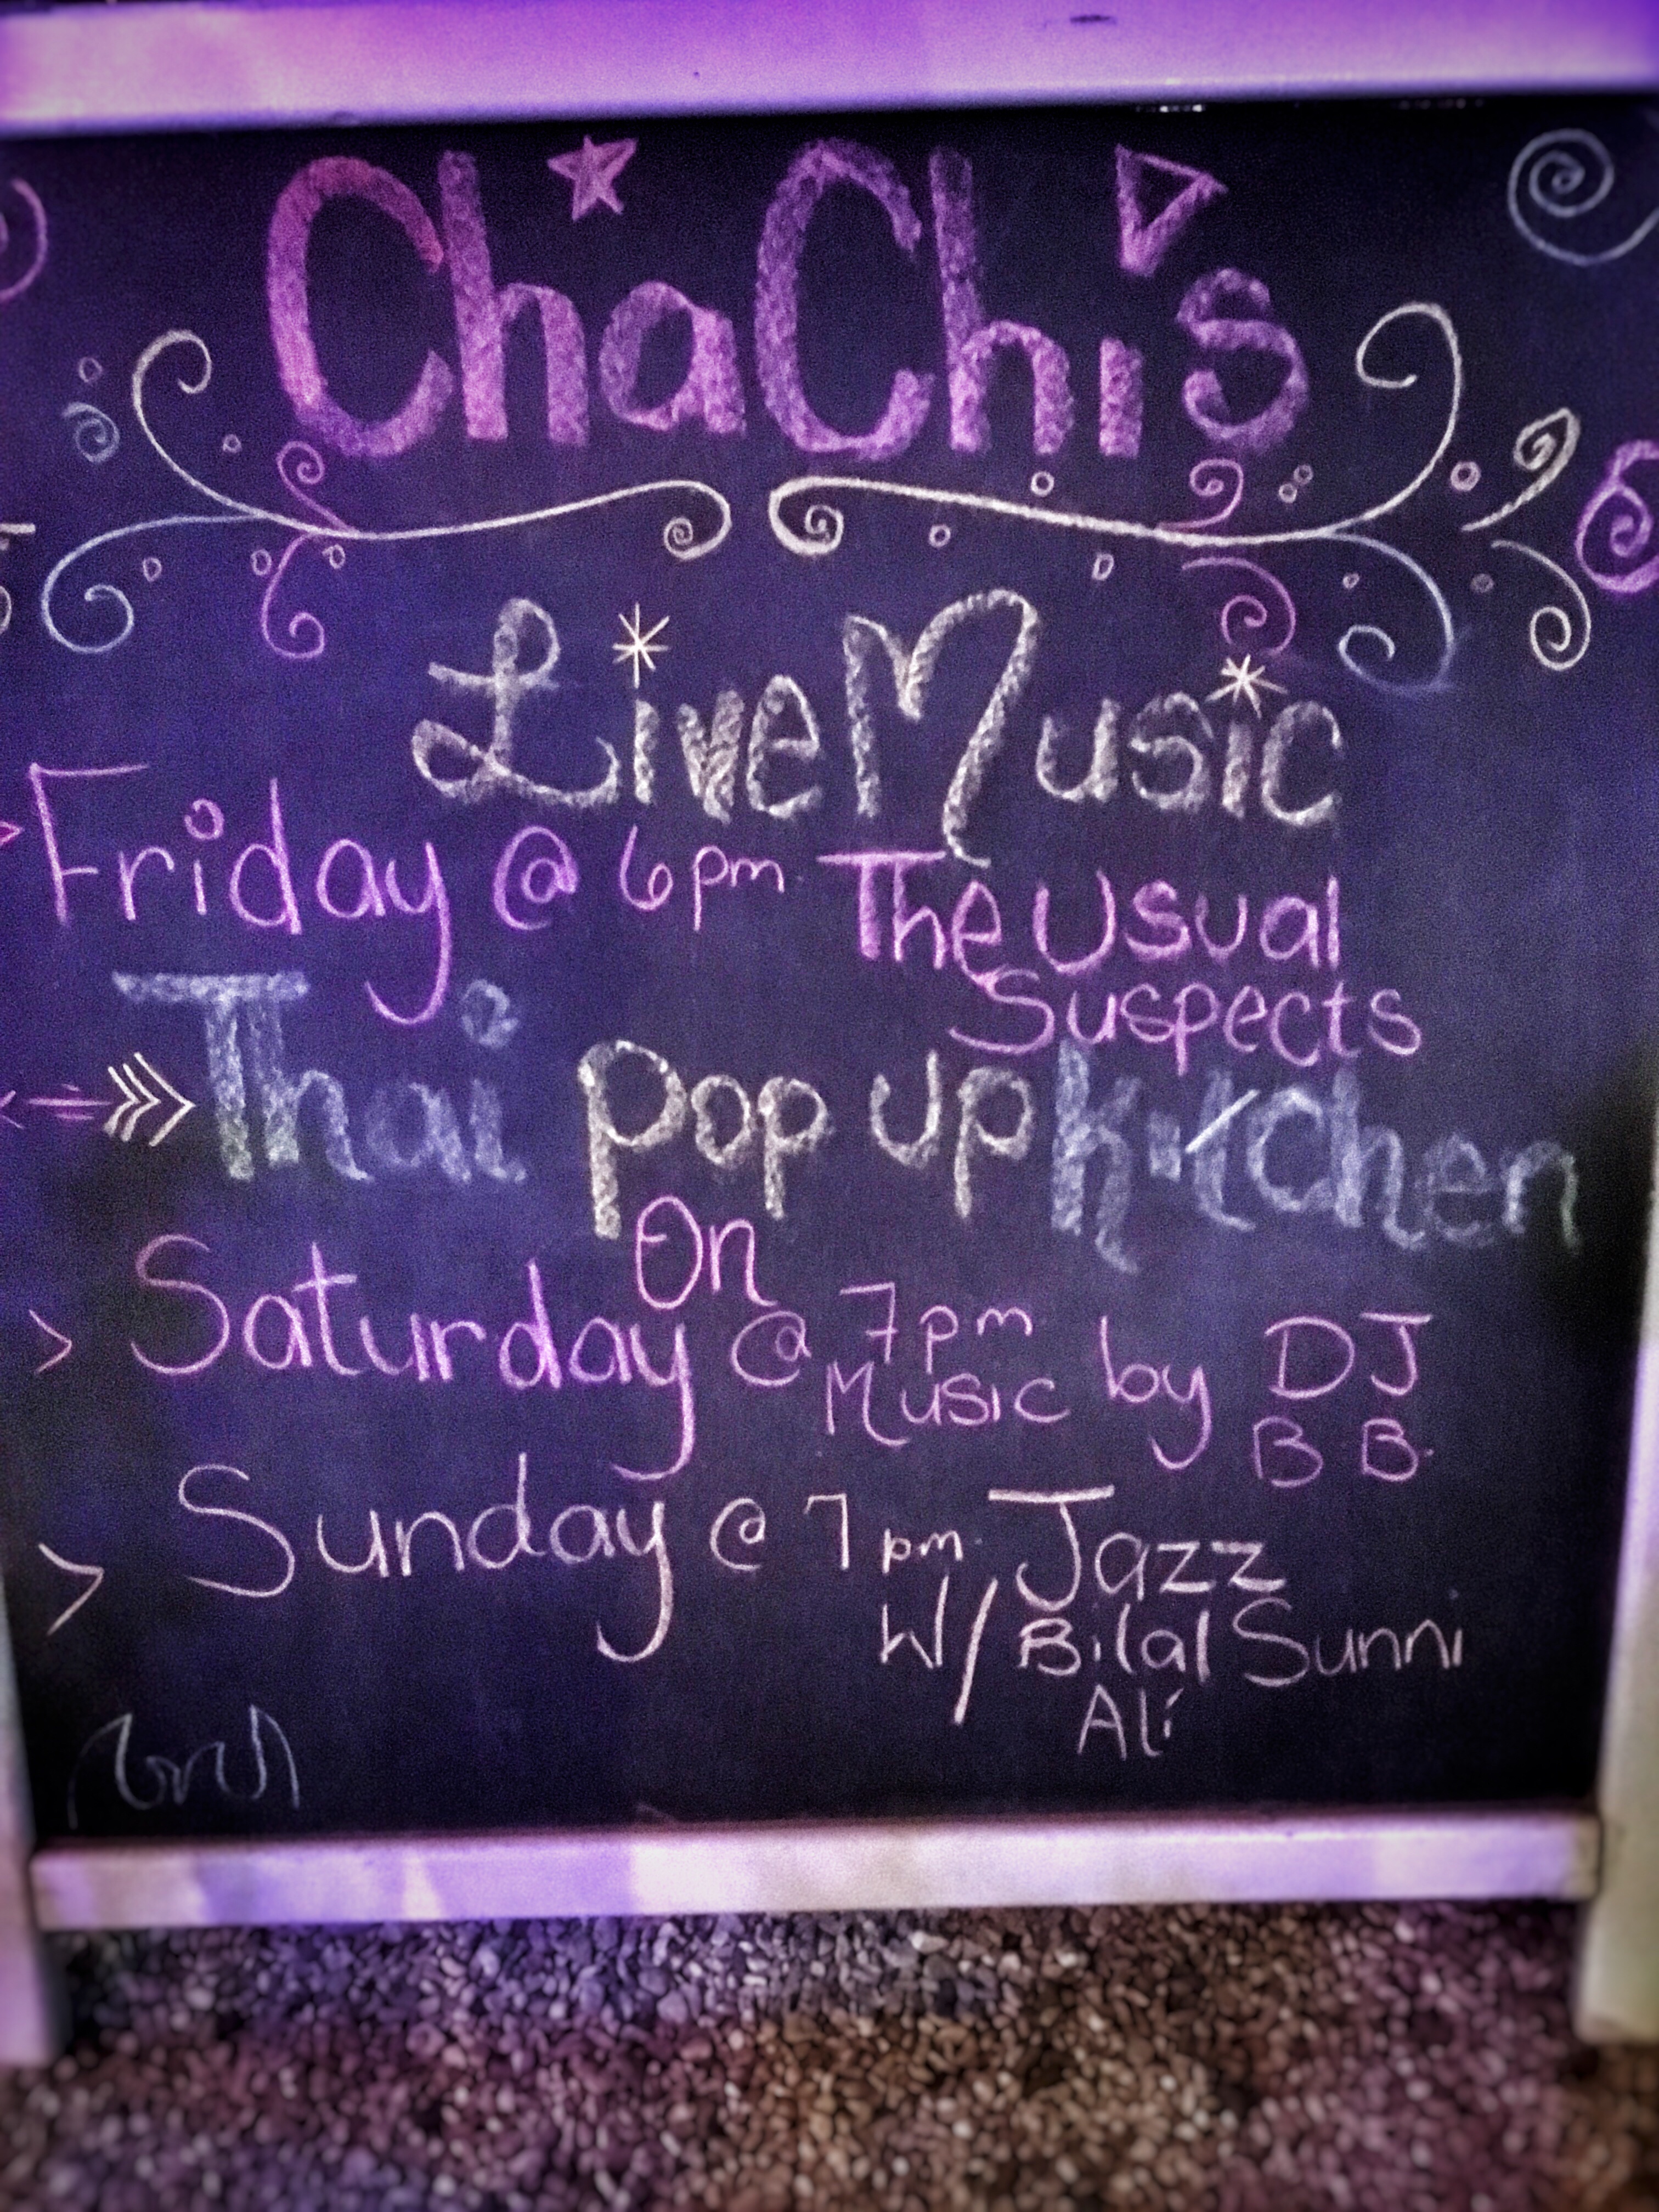 ChaChi's
Live Music
Friday @ 6pm The Usual
Suspects
Thai Pop Up Kitchen
On
Saturday @ 7pm
Music by DJ
B.B.
Sunday @ 7pm. Jazz
W/ Bilal Sunni
Ali